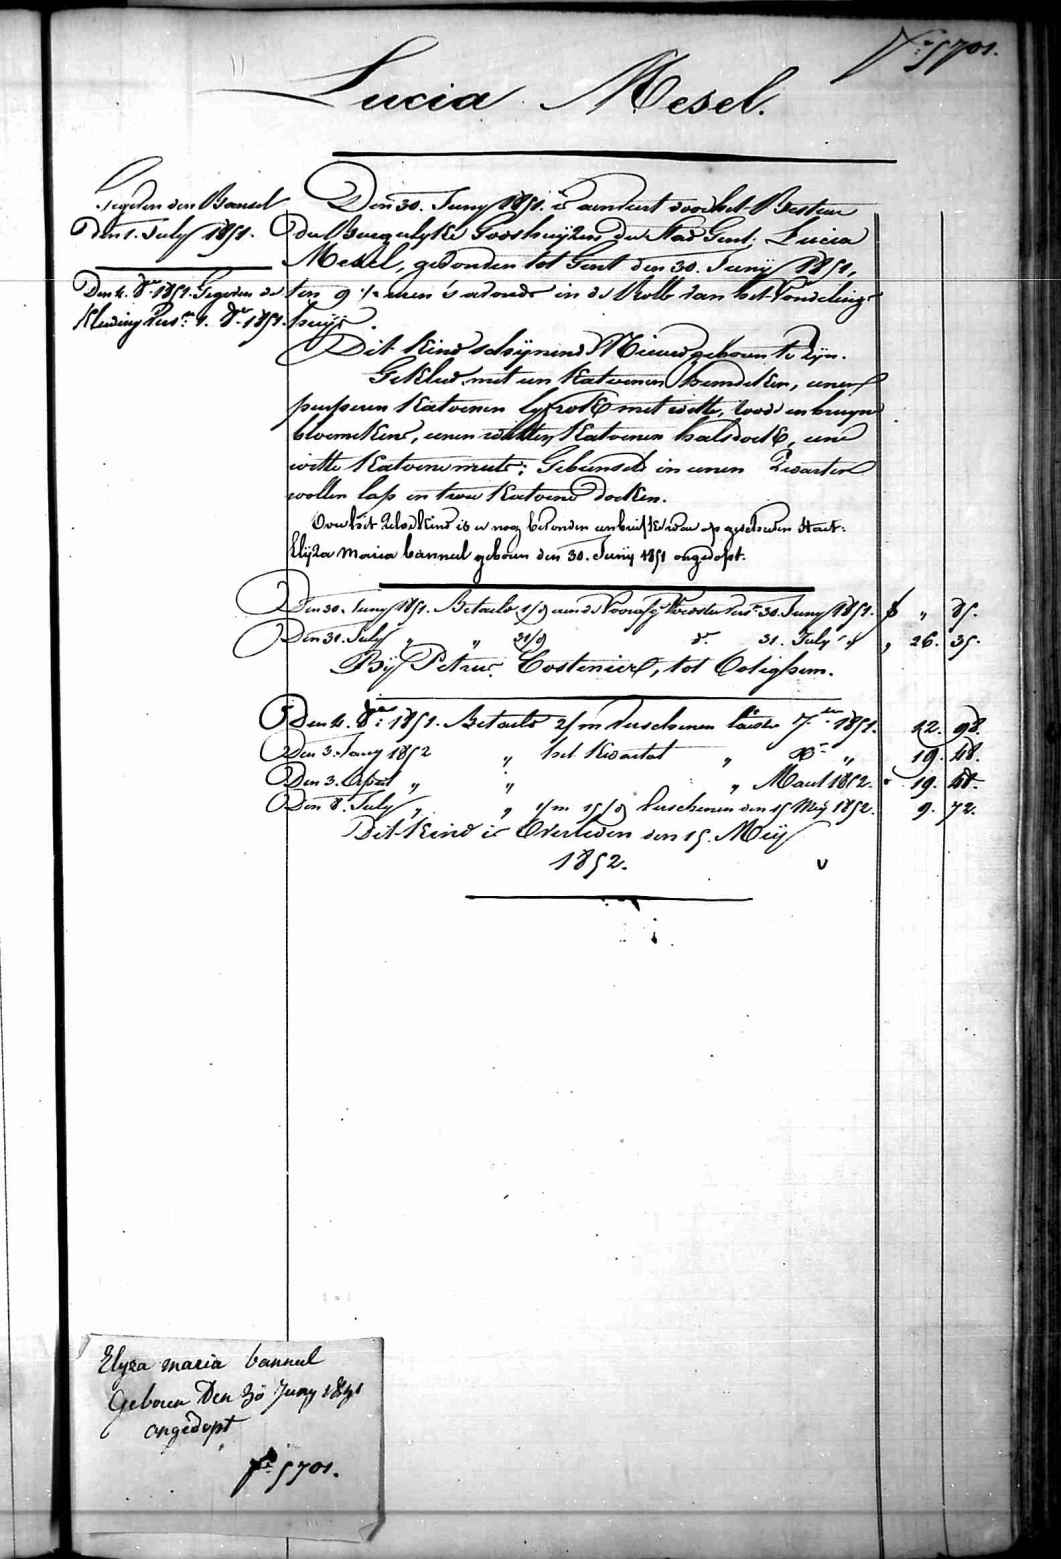 Nr. 5701.
Lucia Mesel.
Gegeven den Bansel
den 1. July 1851.
Den 4. 8er 1851. Gegeven de
Kleeding Verst. 1. 8er 1851.
Den 30. Juny 1851. is aenveert door het Bestuer
der Burgerlyke Godshuyzen der Stad Gent; Lucia
Mesel, gevonden tot Gent den 30. Junij 1851,
ten 9 1/2 uren 's avonds in de Rolle van het Vondeling-
huijs.
Dit kind schijnend Nieuwgeboren te zijn.
Gekleed met een Katoenen hemdeken, eenen
purperen Katoenen lyfrok met witte, roode en bruyne
bloemekens, eenen witten Katoenen halsdoek, eene
witte Katoene muts; Gebunseld in eenen Zwarten
wollen lap en twee Katoene doeken.
Over dit zelve kind is er nog bevonden een briefke waer op geschreven staet:
Elyza maria bannul geboren den 30. Junij 1851 ongedopt.
Den 30. Juny 1851. Betaeld 1/d aen de Voorafg. Voedster Verst. 30. Juny 1851. f „ 85.
Den 31. July „ „ 31/d d°. 31. July „ „ 26. 35.
Bij Petrus Costenier, tot Oolighem.
Den 4. 8er 1851. Betaeld 2/m verschenen laeste 7er 1851. 12. 98.
Den 3. Jany 1852 „ het Kwartael „ Xr „ 19. 48.
Den 3. April „ „ „ Maert 1852. „ 19. 48.
Den 8. July „ „ 1/m 15/d verschenen den 15 Mey 1852. 9. 72.
Dit Kind is Overleden den 15. Meij
1852.
Elyza maria bannul
Geboren Den 30 Juny 1851
ongedopt
Nr. 5701.